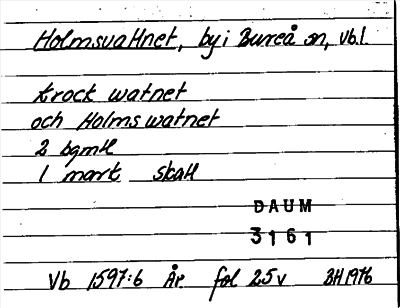 Holmsvattnet, by i Bureå sn, Vb.l.
Krock watnet
och Holms watnet
2 bgmtl
1 mark skatt
DAUM
3161
Vb 1597:6 År fol 25v BH 1976